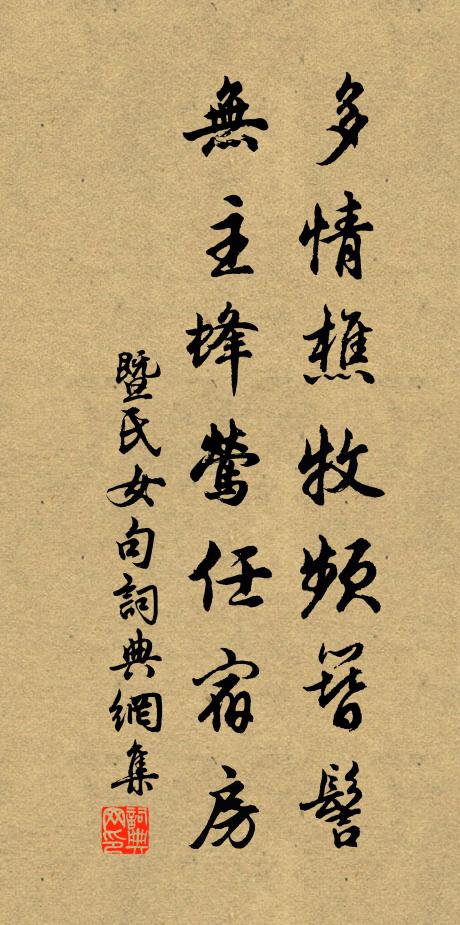 多情樵牧頻簪髻
無主蜂鶯任宿房
暨氏女句詞典網集
詞典網印